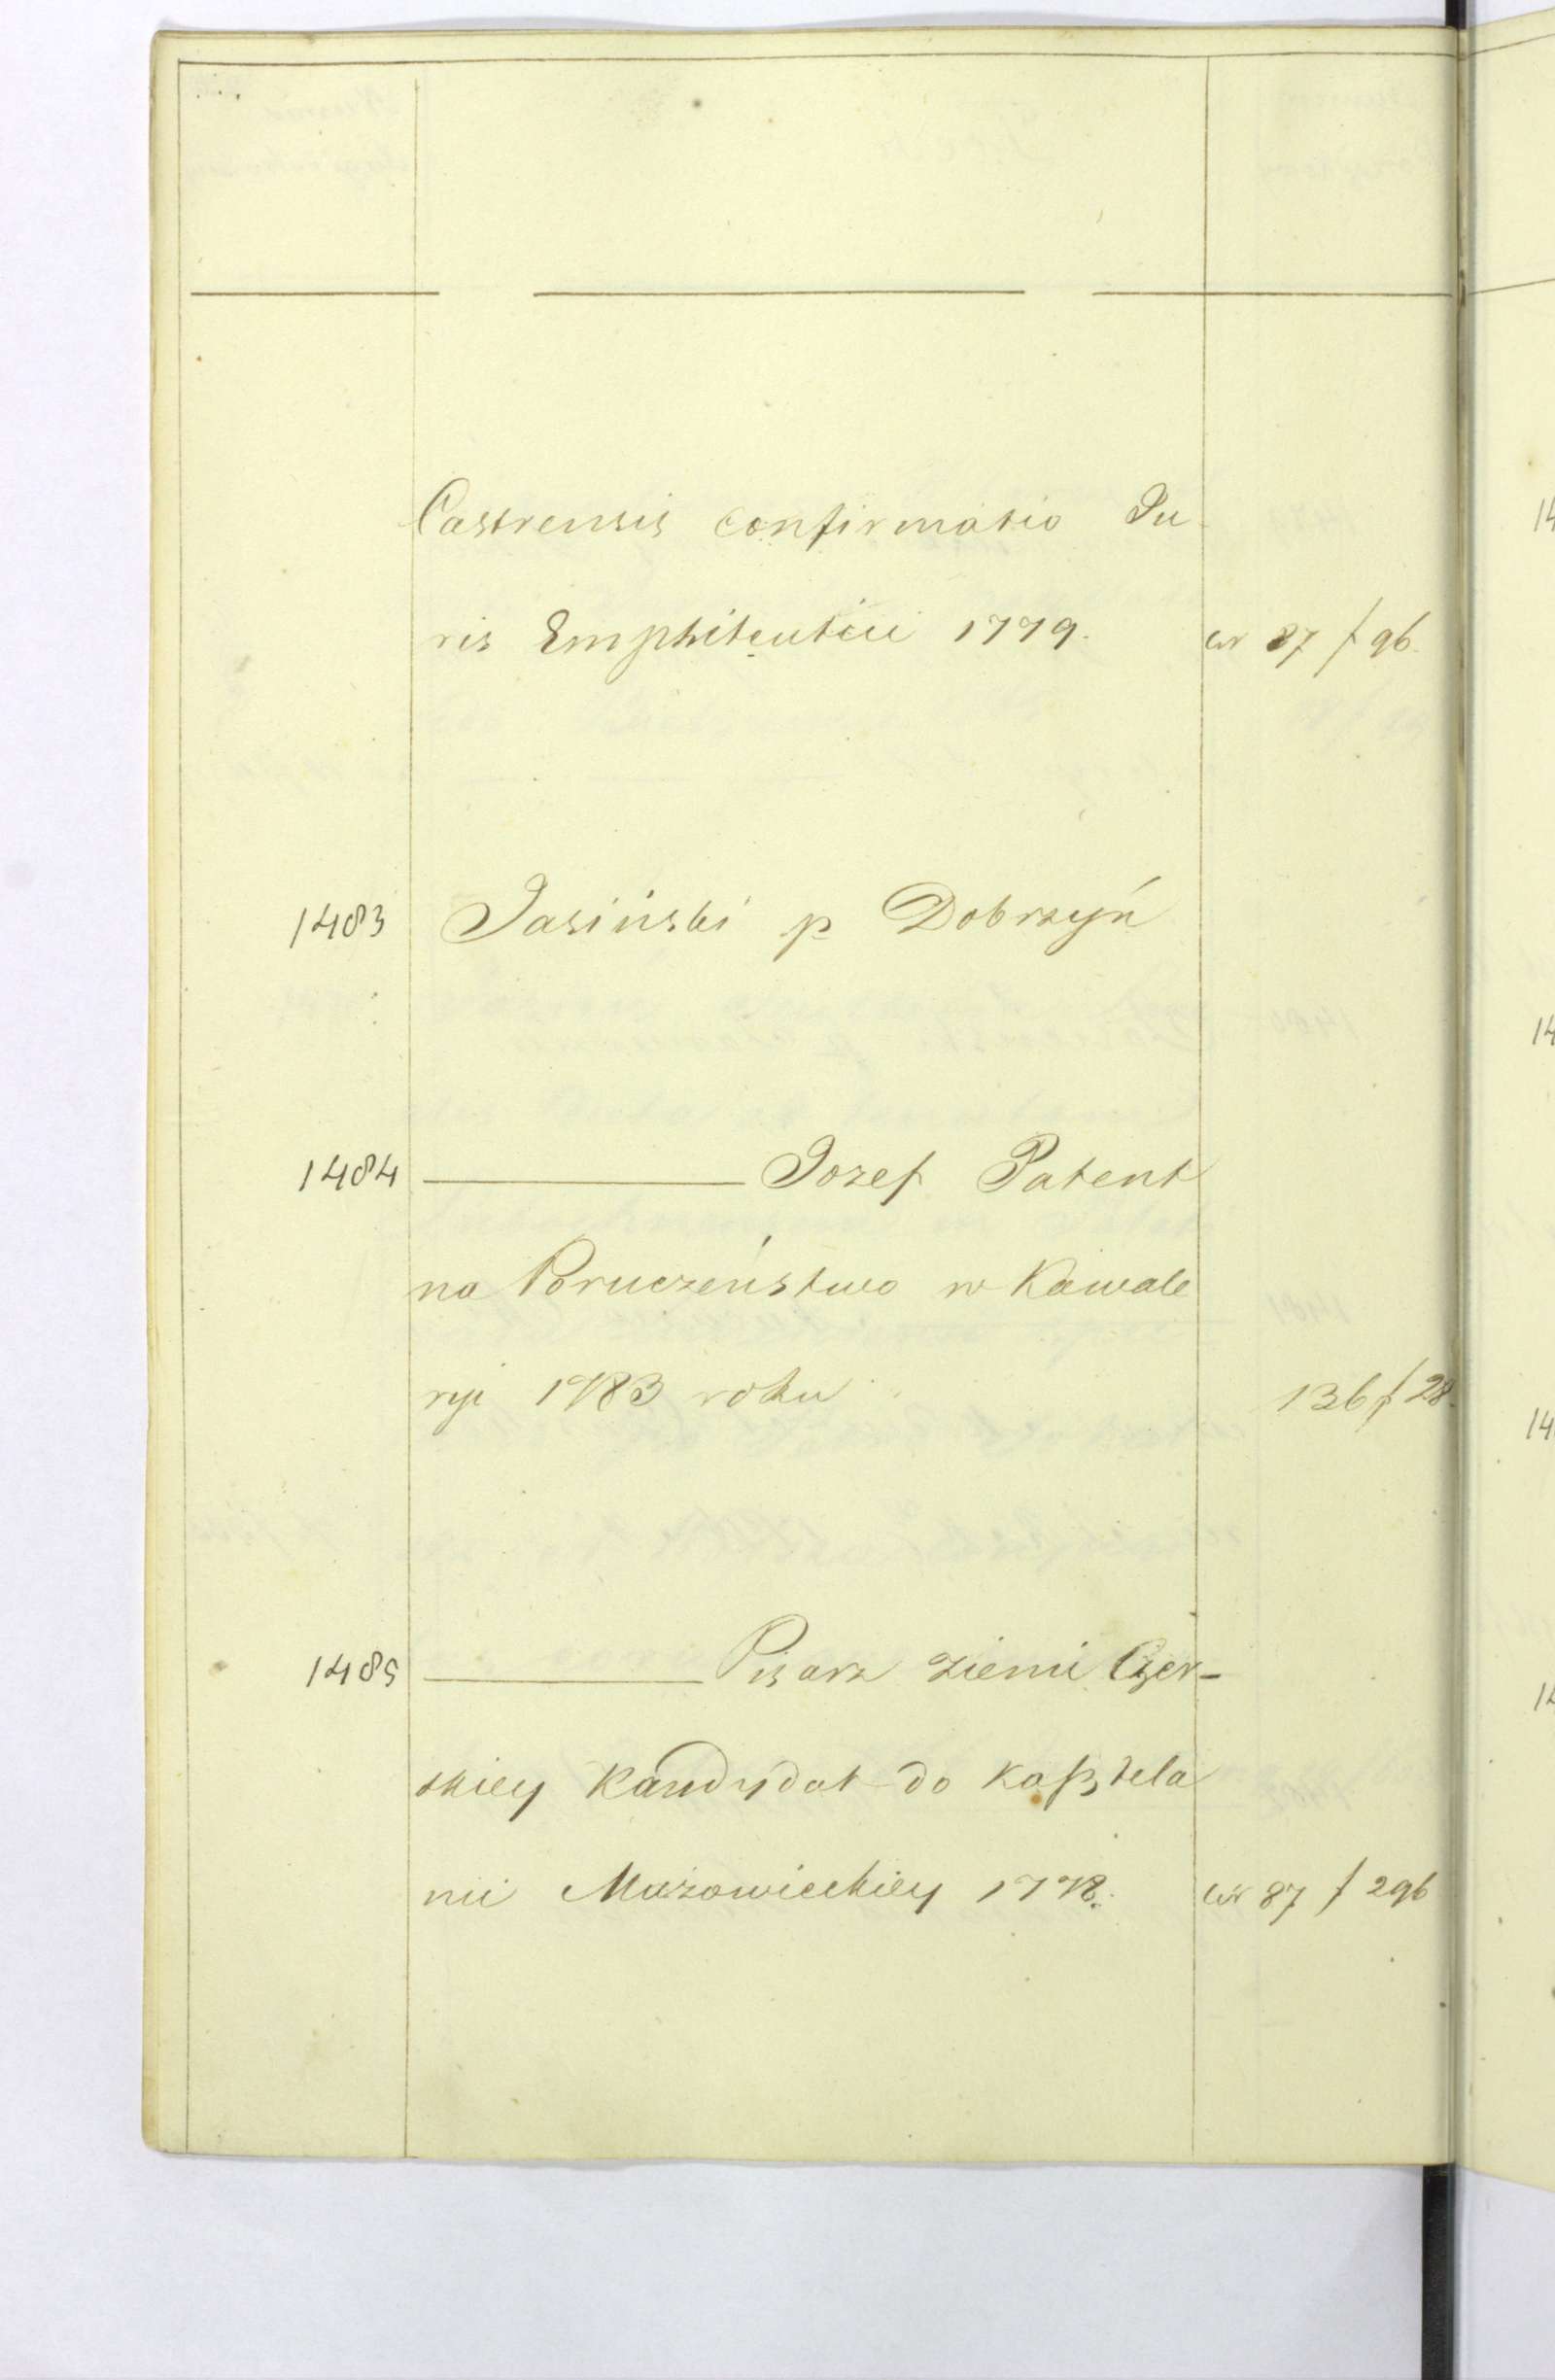 Castrensis confirmatio Ju-
ris Emphiteutici 1779. 87 f 96.
1483 Jasiński p Dobrzyń
1484 ——— Jozef Patent
na Poruczeństwo w Kawale
ryi 1783 roku 136 f 28.
1485 ——— Pisarz ziemi Czer-
skiey Kandydat do Kasztela
nii Mazowieckiey 1778. 87 f 296
14
14
14
14